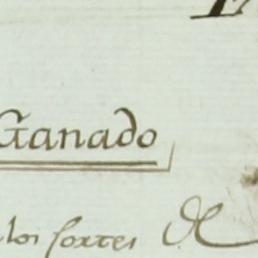 Ganado
los sortes de